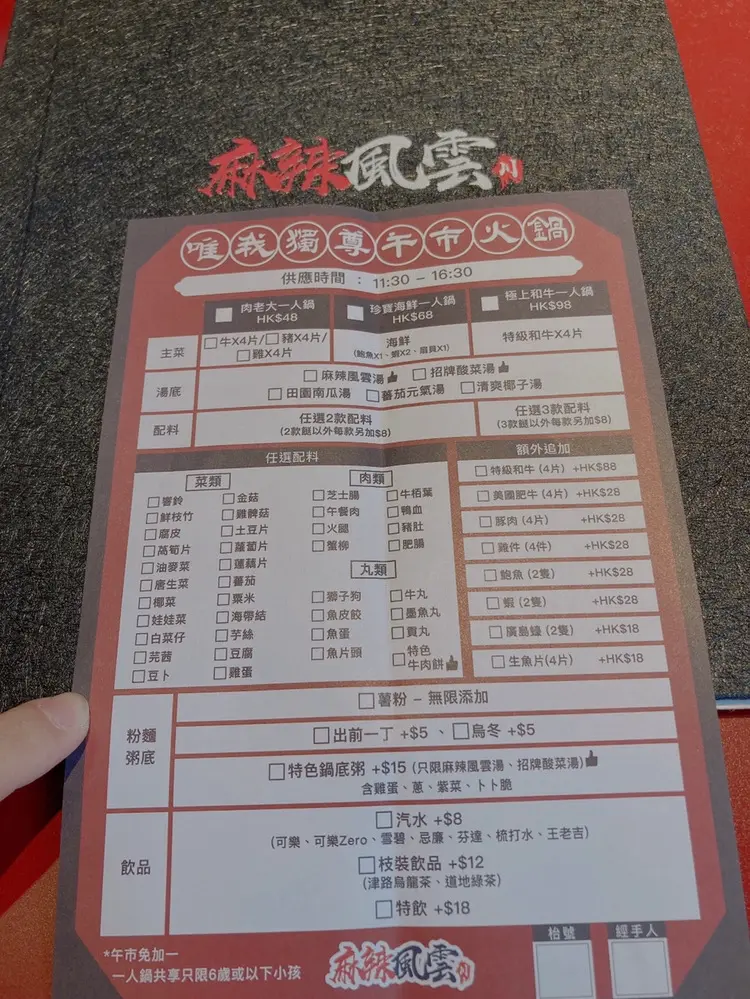 麻辣風雲
唯我獨尊午市火鍋
供應時間 : 11:30 - 16:30
□ 肉老大一人鍋 HK$48
□ 珍寶海鮮一人鍋 HK$68
□ 極上和牛一人鍋 HK$98
主菜
□牛X4片/□豬X4片/
□雞X4片
海鮮
(鮑魚X1、蝦X2、扇貝X1)
特級和牛X4片
湯底
□ 麻辣風雲湯 □ 招牌酸菜湯
□ 田園南瓜湯 □ 蕃茄元氣湯 □ 清爽椰子湯
配料
任選2款配料
(2款餸以外每款另加$8)
任選3款配料
(3款餸以外每款另加$8)
任選配料
菜類
□ 響鈴
□ 鮮枝竹
□ 腐皮
□ 萵筍片
□ 油麥菜
□ 唐生菜
□ 椰菜
□ 娃娃菜
□ 白菜仔
□ 芫茜
□ 豆卜
□ 金菇
□ 雞髀菇
□ 土豆片
□ 蘿蔔片
□ 蓮藕片
□ 蕃茄
□ 粟米
□ 海帶結
□ 芋絲
□ 豆腐
□ 雞蛋
肉類
□ 芝士腸
□ 午餐肉
□ 火腿
□ 蟹柳
□ 牛栢葉
□ 鴨血
□ 豬肚
□ 肥腸
丸類
□ 獅子狗
□ 魚皮餃
□ 魚蛋
□ 魚片頭
□ 牛丸
□ 墨魚丸
□ 貢丸
□ 特色牛肉餅
額外追加
□ 特級和牛 (4片) +HK$88
□ 美國肥牛 (4片) +HK$28
□ 豚肉 (4片) +HK$28
□ 雞件 (4件) +HK$28
□ 鮑魚 (2隻) +HK$28
□ 蝦 (2隻) +HK$28
□ 廣島蠔 (2隻) +HK$18
□ 生魚片(4片) +HK$18
粉麵
粥底
□ 薯粉 – 無限添加
□ 出前一丁 +$5 、□烏冬 +$5
□ 特色鍋底粥 +$15 (只限麻辣風雲湯、招牌酸菜湯)
含雞蛋、蔥、紫菜、卜卜脆
飲品
□ 汽水 +$8
(可樂、可樂Zero、雪碧、忌廉、芬達、梳打水、王老吉)
□ 枝裝飲品 +$12
(津路烏龍茶、道地綠茶)
□ 特飲 +$18
*午市免加一
一人鍋共享只限6歲或以下小孩
麻辣風雲
枱號
經手人